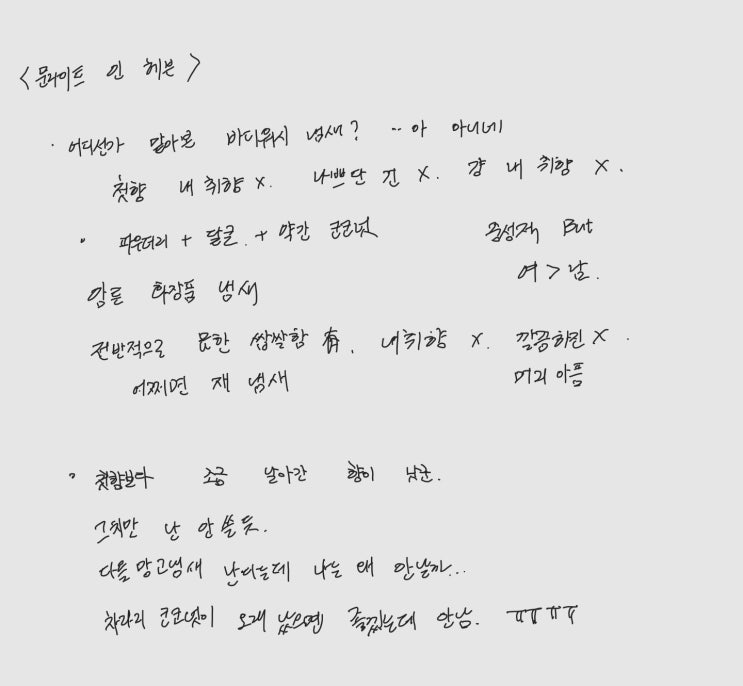 <문라이트 인 헤븐>
· 어디선가 맡아본 바디워시 냄새? ··아 아니네
첫향 내 취향 x. 나쁘단 건 x. 걍 내 취향 x.
· 파우더리 + 달콤. + 약간 코코넛
중성적 But
여 > 남.
암튼 화장품 냄새
전반적으로 묘한 쌉쌀함 有. 내취향 x. 깔끔하진 x.
어찌면 재 냄새
머리 아픔
· 첫향보다 조금 날아간 향이 낫군.
그치만 난 안 쓸 듯.
다들 망고냄새 난다는데 나는 왜 안날까...
차라리 코코넛이 오래 났으면 좋겠는데 안남. ㅠㅠㅠㅠ